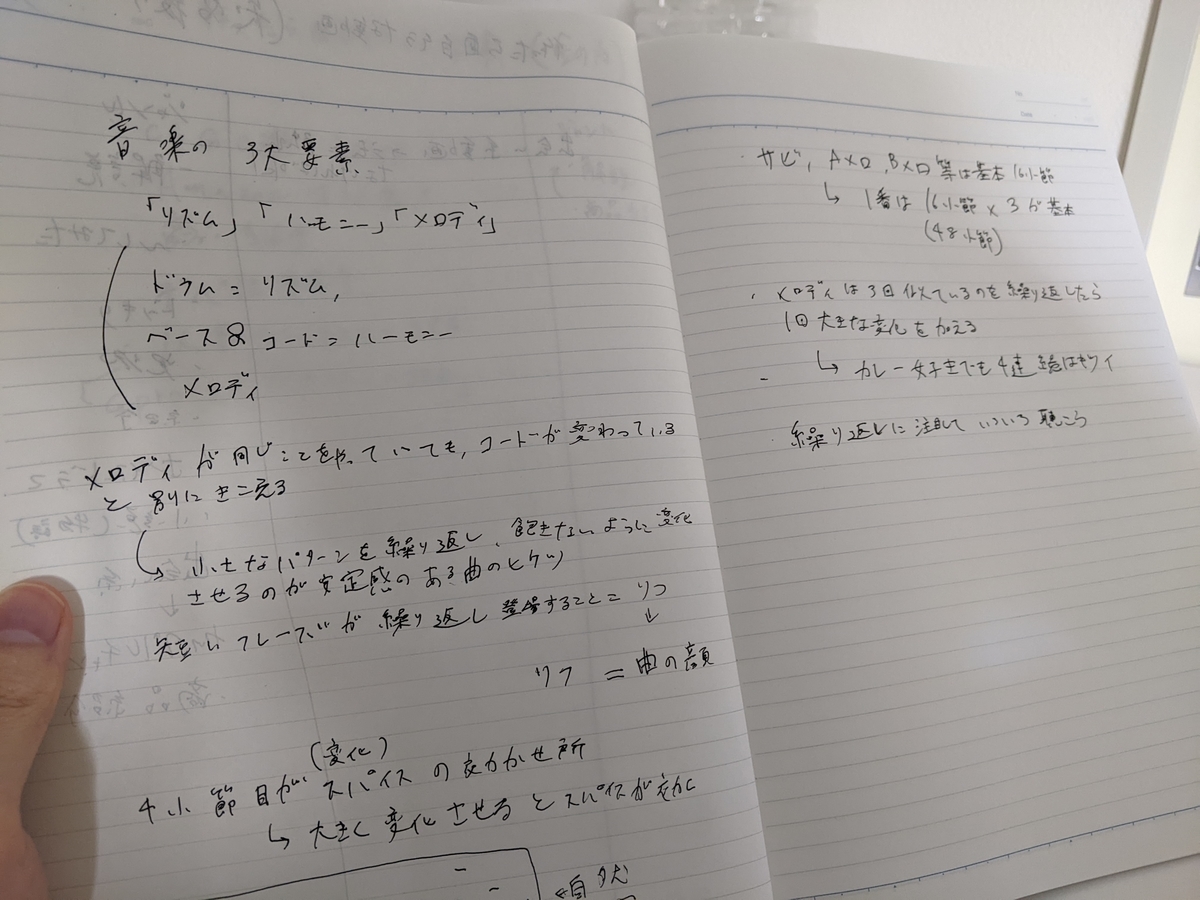 音楽の 3大要素
「リズム」「ハーモニー」「メロディ」
ドラム = リズム,
ベース & コード = ハーモニー
メロディ
メロディが同じことをやっていても, コードが変わっている
と別にきこえる
↳ 小さなパターンを繰り返し、飽きないように変化
させるのが安定感のある曲のヒケツ
短いフレーズが繰り返し登場すること = リフ
↓
リフ = 曲の顔
(変化)
4小節目がスパイスの効かせ所
↳ 大きく変化させるとスパイスが効く
自然
・サビ, Aメロ, Bメロ等は基本16小節
↳ 1番は 16小節 × 3 が基本
(48小節)
・メロディは3回似ているのを繰り返したら
1回大きな変化を加える
↳ カレー好きでも4連続はキツイ
・繰り返しに注目していろいろ聴こう